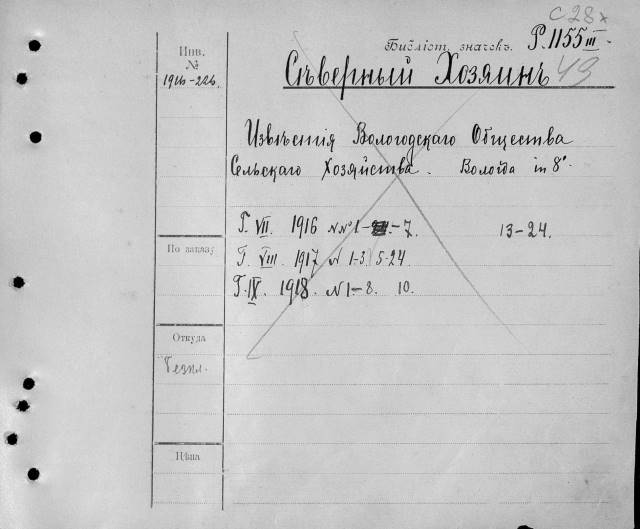 С 28
Библіот. значекъ. P.1155 III.
Инв.
№
1916-226
Сѣверный Хозяинъ 49
Извѣстія Вологодскаго Общества
Сельскаго Хозяйства. Вологда in 8°.
Г. VII. 1916 №№ 1- -7. 13-24.
По заказу
Г. VIII. 1917 № 1-3. 5-24.
Г. IX. 1918. №1-8. 10.
Откуда
Безпл.
Цѣна